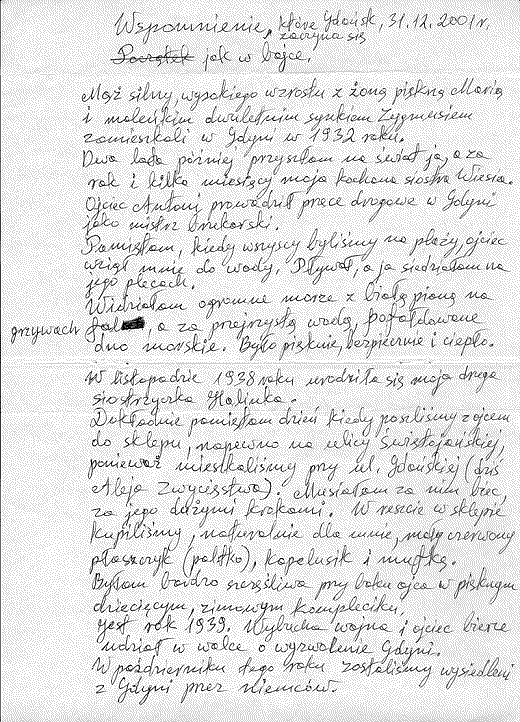 Wspomnienie, które Gdańsk, 31.12.2001r.
zaczyna się
Początek jak w bajce.
Mąż silny, wysokiego wzrostu z żoną piękną Marią
i maleńkim dwuletnim synkiem Zygmusiem
zamieszkali w Gdyni w 1932 roku.
Dwa lata później przyszłam na świat ja, a za
rok i kilka miesięcy moja kochana siostra Wiesia.
Ojciec Antoni prowadził prace drogowe w Gdyni
jako mistrz brukarski.
Pamiętam, kiedy wszyscy byliśmy na plaży, ojciec
wziął mnie do wody. Pływał, a ja siedziałam na
jego plecach.
Widziałam ogromne morze z białą pianą na
grzywach, a za przejrzystą wodą, pofałdowane
dno morskie. Było pięknie, bezpiecznie i ciepło.
W listopadzie 1938 roku urodziła się moja druga
siostrzyczka Halinka.
Dokładnie pamiętam dzień kiedy poszliśmy z ojcem
do sklepu, napewno na ulicy Świętojańskiej,
ponieważ mieszkaliśmy przy ul. Gdańskiej (dziś
Aleja Zwycięstwa). Musiałam za nim biec,
za jego dużymi krokami. W reszcie w sklepie
kupiliśmy, naturalnie dla mnie, mały czerwony
płaszczyk (paltko), kapelusik i mufkę.
Byłam bardzo szczęśliwa przy boku ojca w pięknym
dziecięcym, zimowym kompleciku.
Jest rok 1939. Wybucha wojna i ojciec bierze
udział w walce o wyzwolenie Gdyni.
W październiku tego roku zostaliśmy wysiedleni
z Gdyni przez Niemców.